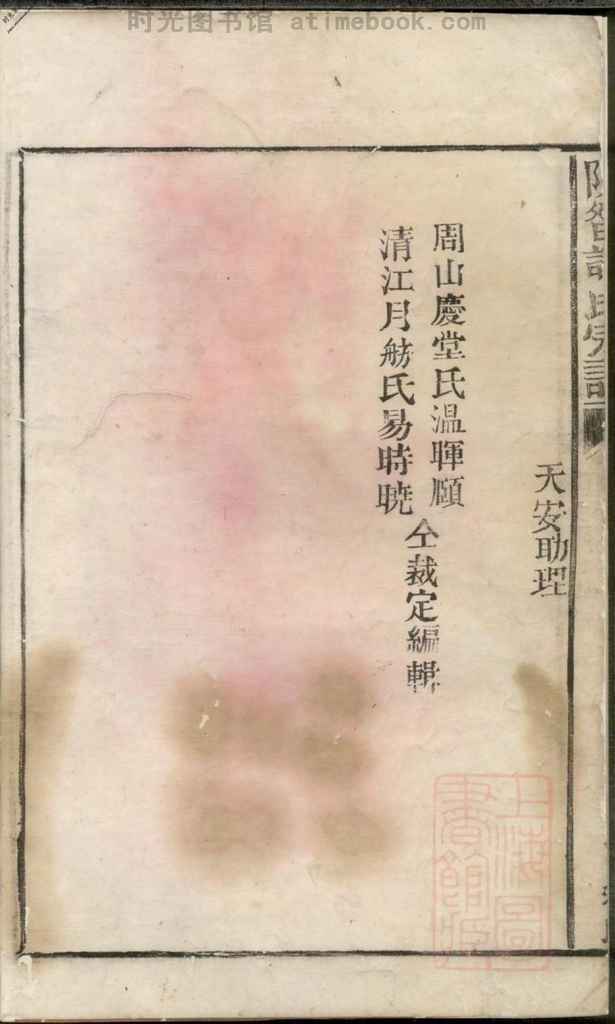 时光图书馆 atimebook.com
天安助理
周山慶堂氏溫暉頤
清江月舫氏易時曉
仝裁定編輯
上海圖書館藏